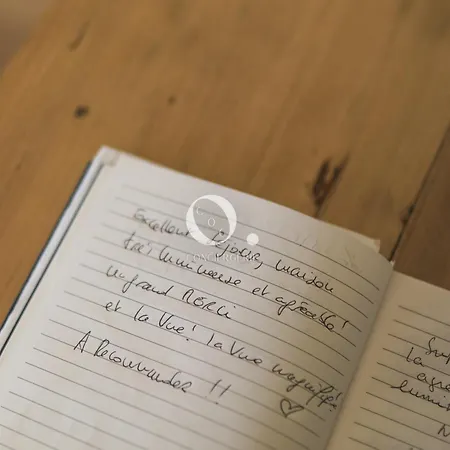 Excellent séjour, maison
très lumineuse et agréable!
un grand MERCI
et la vue! la vue magnifique!
A Recommander !!
O.
CONCIERGERIE
la